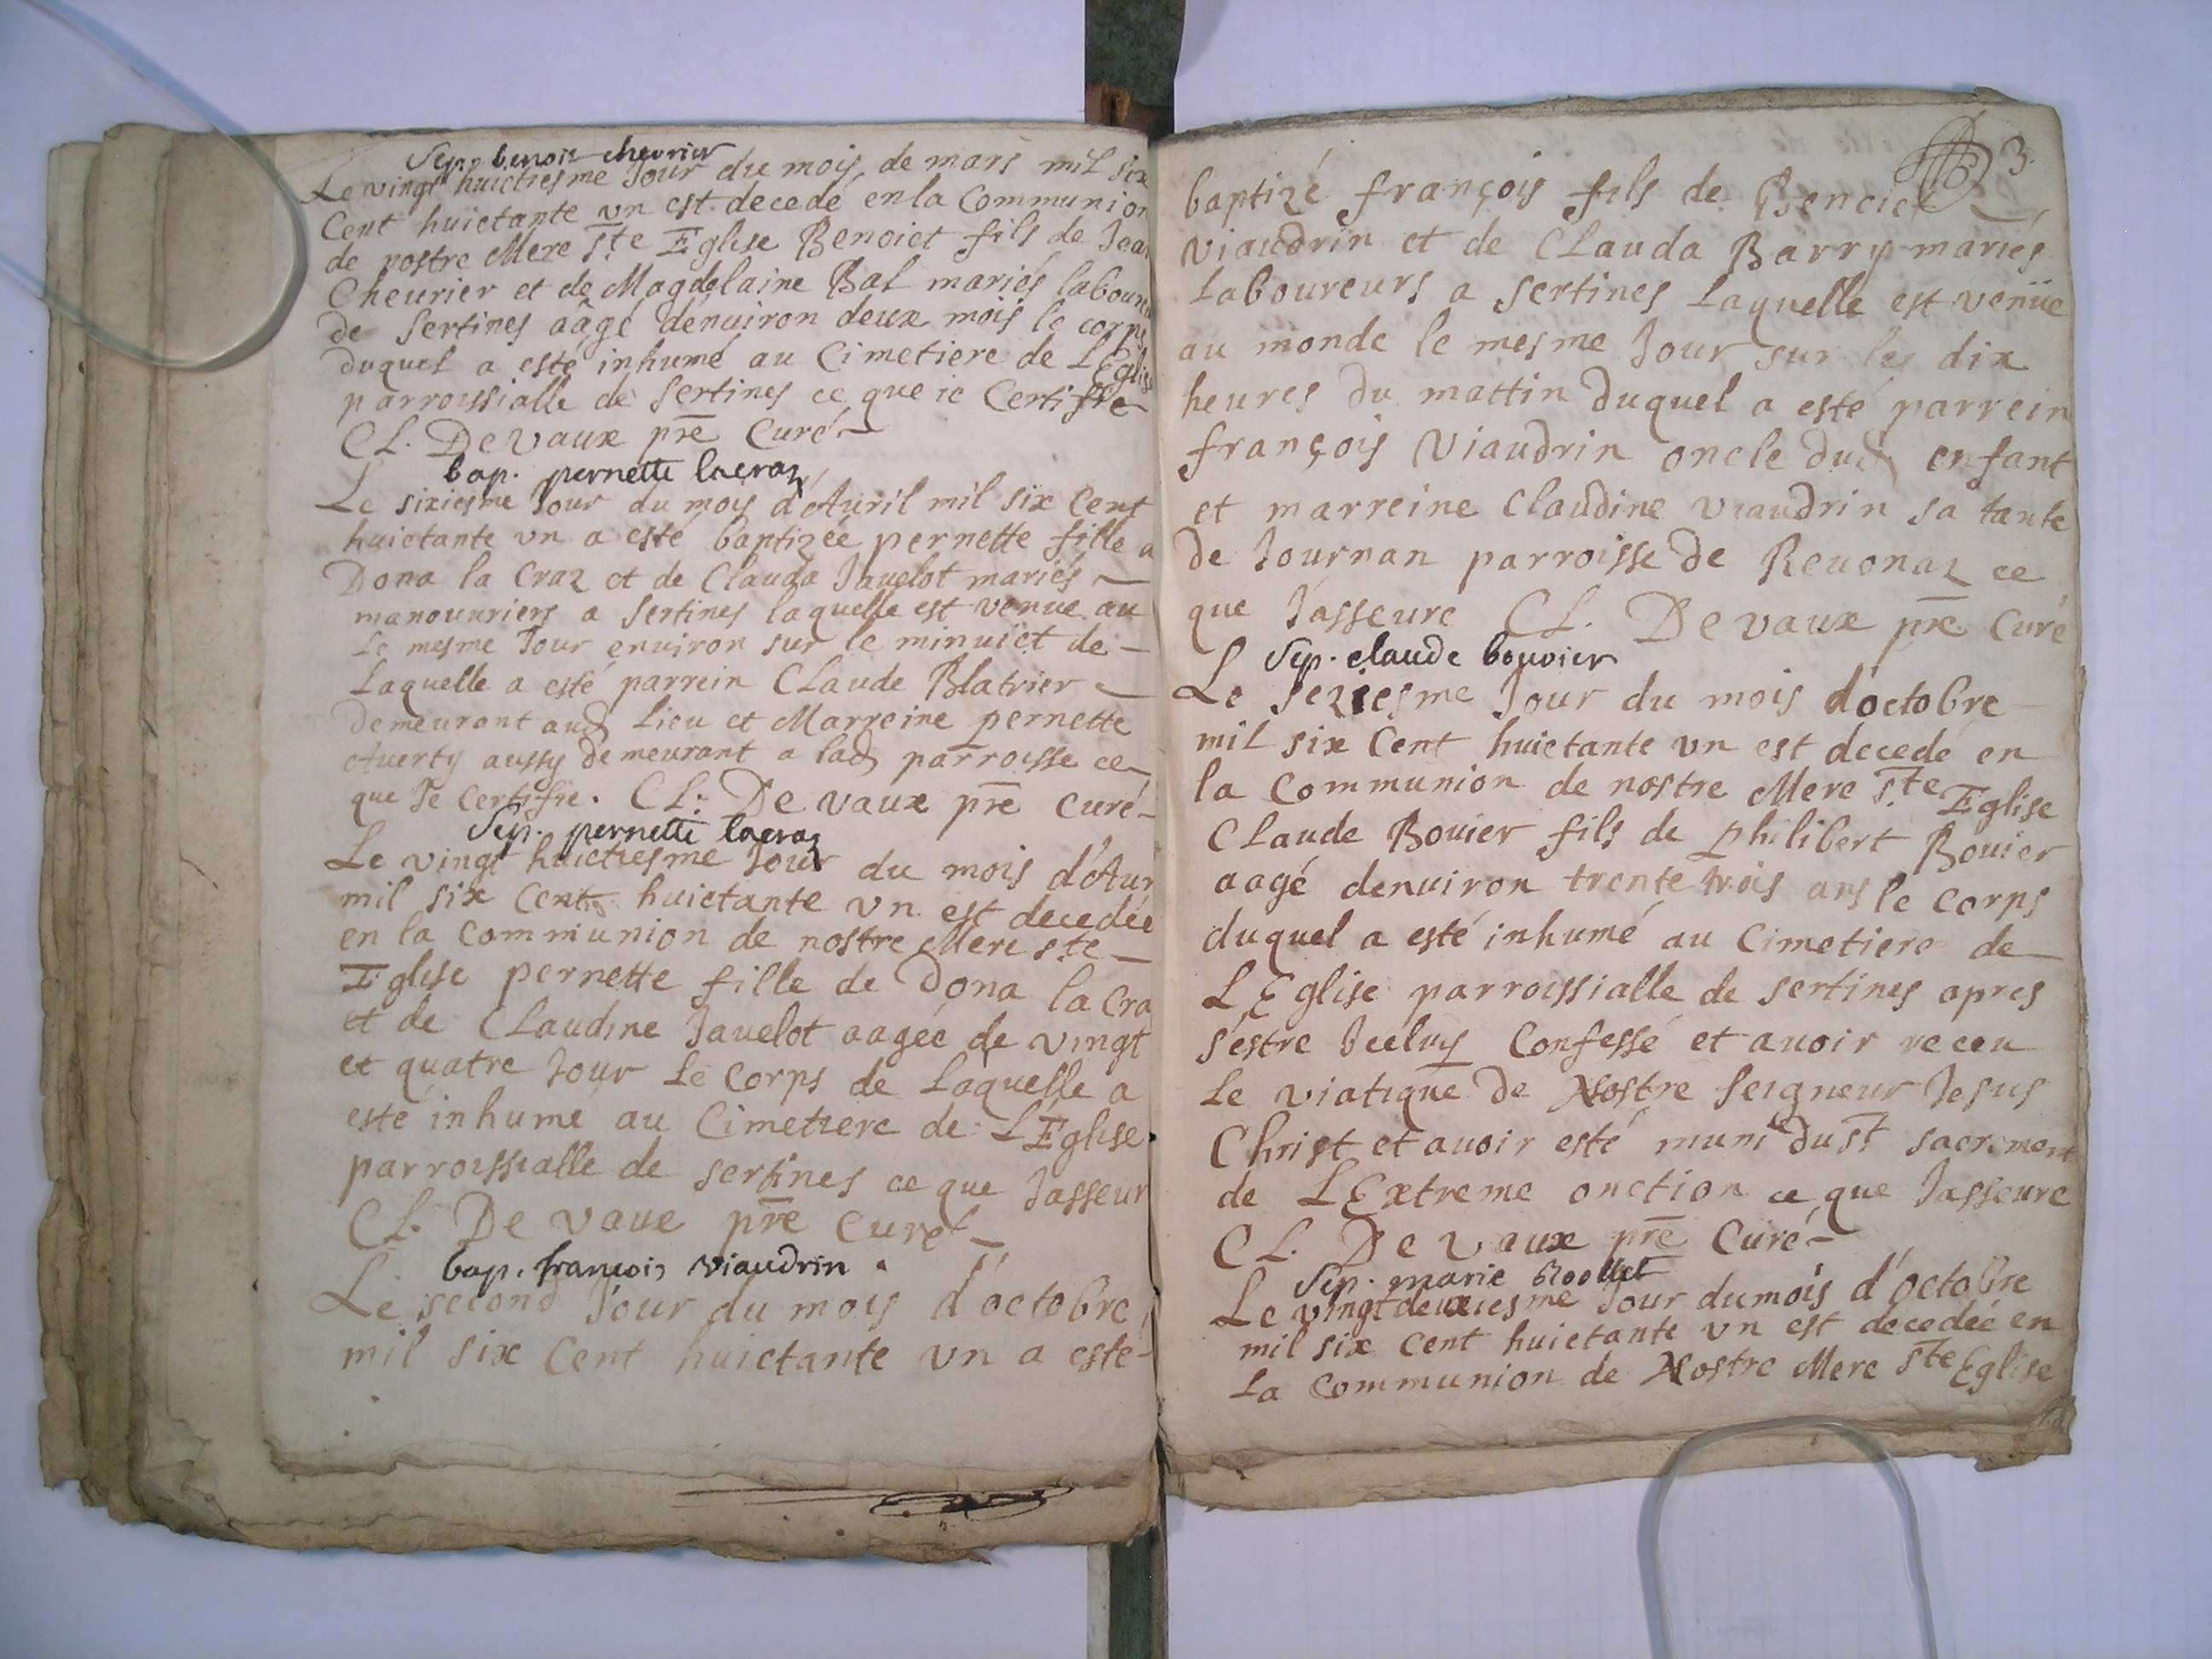 Sep. benoit chevrier
Le vingt huictiesme Jour du mois de mars mil six
Cent huictante vn est decedé en la Communion
de nostre Mere Ste Eglise Benoict fils de Jean
Cheurier et de Magdelaine Bal mariés laboureu
de Sertines aâgé denuiron deux mois le corps
duquel a esté inhumé au Cimetiere de LEglise
parroissialle de Sertines ce que ie Certifie
CL. De vaux pre Curé
bap. pernette lacraz
Le sixiesme Jour du mois d'Auril mil six Cent
huictante vn a esté baptizée pernette fille a
Dona la Craz et de Clauda Jauelot mariés
manouuriers a Sertines laquelle est venue au
Le mesme Jour enuiron sur le minuict de
Laquelle a esté parrein CLaude Blatrier
demeurant aud Lieu et Marreine pernette
Auerty aussy demeurant a lad parroisse ce
que Je Certifie. CL: De vaux pre Curé
Sep. pernette lacraz
Le vingt huictiesme Jour du mois d'Aur
mil six Cent huictante vn est decedée
en la Communion de nostre Mere ste
Eglise pernette fille de Dona la Cra
et de CLaudine Jauelot aagée de vingt
et quatre Jour Le Corps de Laquelle a
esté inhumé au Cimetiere de LEglise
parroissialle de sertines ce que Jasseur
CL. De vaux pre Curé
bap. francois viaudrin.
Le second Jour du mois d'octobre
mil six Cent huictante vn a esté
3.
baptizé françois fils de Benoict
viaudrin et de CLauda Barry mariés
Laboureurs a Sertines Laquelle est venüe
au monde le mesme Jour sur les dix
heures du mattin duquel a esté parrein
françois Viaudrin oncle dud enfant
et marreine Claudine viaudrin sa tante
de Journan parroisse de Reuonaz ce
que Jasseure CL. De vaux pre Curé
Sep. claude bouvier
Le seziesme Jour du mois doctobre
mil six Cent huictante vn est decedé en
la Communion de nostre Mere Ste Eglise
CLaude Bouier fils de philibert Bouier
aagé denuiron trente trois ans le Corps
duquel a esté inhumé au Cimetiere de
LEglise parroissialle de sertines apres
s'estre Jceluy Confessé et auoir receu
Le viatique de Nostre Seigneur Jesus
Christ et auoir esté muni du st sacrement
de LExtreme onction ce que Jasseure
CL. De vaux pre Curé
Sep. marie
Le vingt deuxiesme Jour du mois d'octobre
mil six Cent huictante vn est decedée en
La Communion de Nostre Mere Ste Eglise